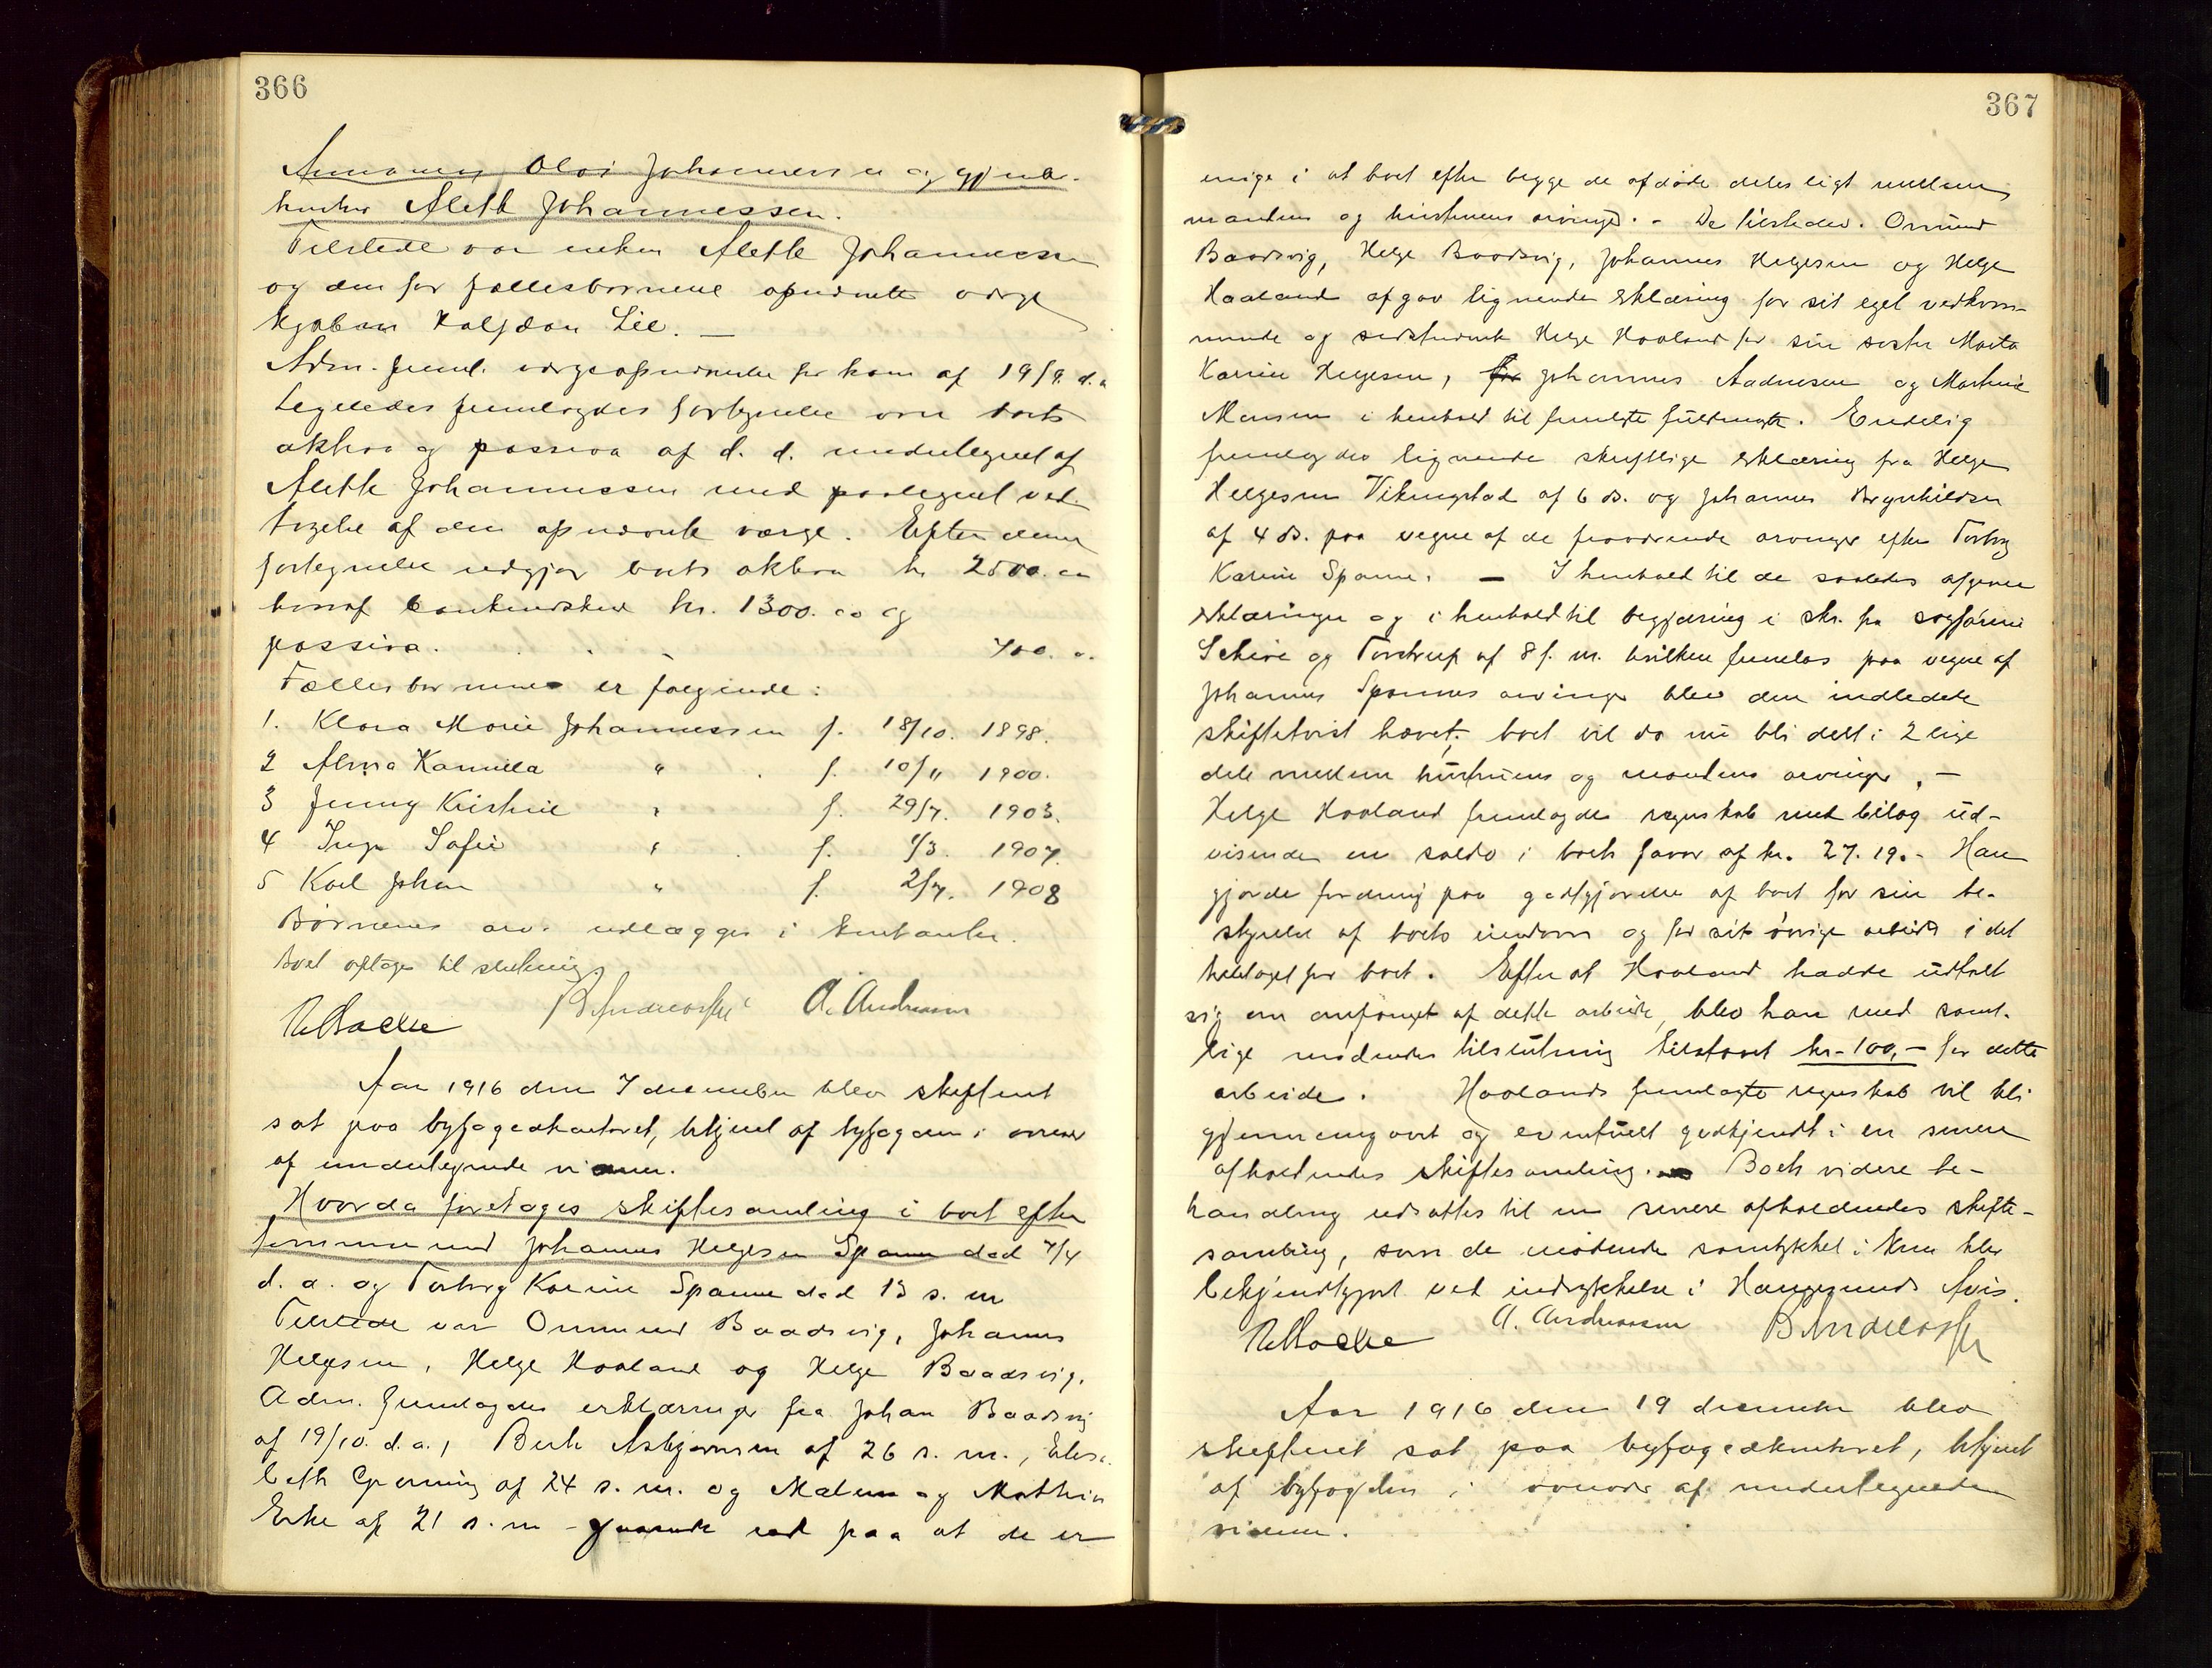 366
Olai Johannessen og gjenl.
hustru Alette Johannessen.
Tilstede var enken Alette Johannessen
og den for fællesbørnene opnævnte værge
Halfdan Lie. —
Adm. freml. værgeopnævnelse for ham af 19/9. d.a
Ligeledes fremlagdes fortegnelse over boets
aktiva og passiva af d. d. undertegnet af
Alette Johannessen med paategnet ved-
tagelse af den opnævnte værge. Efter denne
fortegnelse utgjør boets aktiva kr. 2500.00
hvoraf bankindskud kr. 1300.00 og
passiva . . . 700. 0.
Fællesbørnene er følgende:
1. Klara Marie Johannessen f. 18/10. 1898.
2 Alma Kamilla " f. 10/11 1900.
3 Jenny Kristine " f. 29/7. 1903.
4 Inga Sofie " f. 1/3. 1907.
5 Karl Johan " f. 2/7. 1908
Børnenes arv utlægges i kontanter.
Boet optages til slutning.
A. Andreassen
Aar 1916 den 7 december blev skifteret
sat paa byfogedkontoret, betjent af byfogden i overvær
af undertegnede vidner.
Hvorda foretages skiftesamling i boet efter
Johannes Helgesen Spanne død 7/4
d. a. og Torborg Karine Spanne død 13 s. m
Tilstede var Ommund Baadsvig, Johannes
Helgesen, Helge Haaland og Helge Baadsvig.
Adm. fremlagdes erklæringer fra Johan Baadsvig
af 19/10. d.a., Berte Asbjørnsen af 26 s. m., Elisa-
beth Grønning af 24 s. m. og Malene og Mathias
Erke af 21 s. m gaaende ud paa at de er
367
enige i at boet efter begge de afdøde deles ligt mellem
mandens og hustruens arvinger. - De tilstedev. Ommund
Baadsvig, Helge Baadsvig, Johannes Helgesen og Helge
Haaland afgav lignende erklæring for sit eget vedkom-
mende og sidstnævnte Helge Haaland for sin søster Marta
Karine Helgesen, for Johannes Aadnesen og Martine
Monsen i henhold til fremlagte fuldmagter. Endelig
fremlagdes lignende skriftlige erklæring fra Helge
Helgesen Vikingstad af 6 ds. og Johannes Brynhildsen
af 4 ds. paa vegne af de fraværende arvinger efter Torborg
Karine Spanne. — I henhold til de saaledes afgivne
erklæringer og i henhold til begjæring i skr. fra sagførerne
og Torstrup af 8 f. m. hvilken fremlas paa vegne af
Johannes Spannes arvinger blev den indledede
skiftetvist hævet; boet vil da nu bli delt i 2 lige
dele mellem hustruens og mandens arvinger. —
Helge Haaland fremlagde regnskab med bilag ud-
visende en saldo i boets favør af kr. 27.19. - Han
gjorde fordring paa godtgjørelse af boet for sin be-
styrelse af boets eiendom og for sit øvrige arbeide i det
hele taget for boet. Efter at Haaland hadde udtalt
sig om omfanget af dette arbeide, blev han med samt-
lige mødendes tilslutning tilstaaet kr. 100,- for dette
arbeide. Haalands fremlagte regnskab vil bli
gjennemgaat og eventuelt godkjendt i en senere
afholdendes skiftesamling. Boets videre be-
handling udsattes til en senere afholdendes skifte-
samling, som de mødende samtykket i kun blev
bekjendtgjort ved indrykkelse i Haugesunds Avis.
A. Andreassen
Aar 1916 den 19 december blev
skifteret sat paa byfogedkontoret, betjent
af byfogden i overvær af undertegnede
vidner.